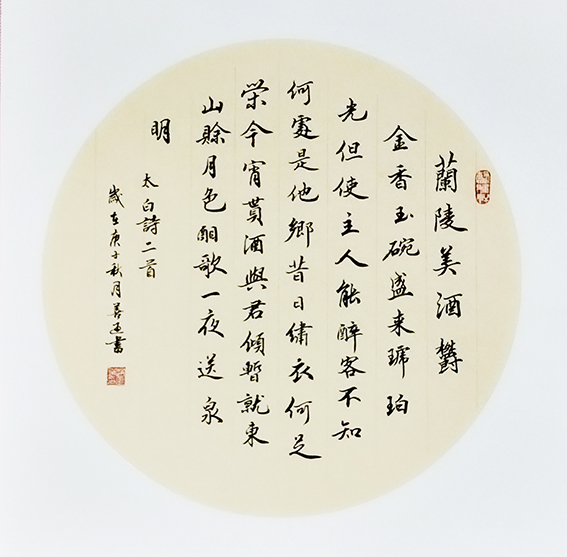 蘭陵美酒欝
金香玉碗盛来琥珀
光但使主人能醉客不知
何處是他鄉昔日繡衣何足
榮今宵貰酒與君傾暫就東
山賒月色酣歌一夜送泉
明
太白詩二首
歲在庚子秋月書